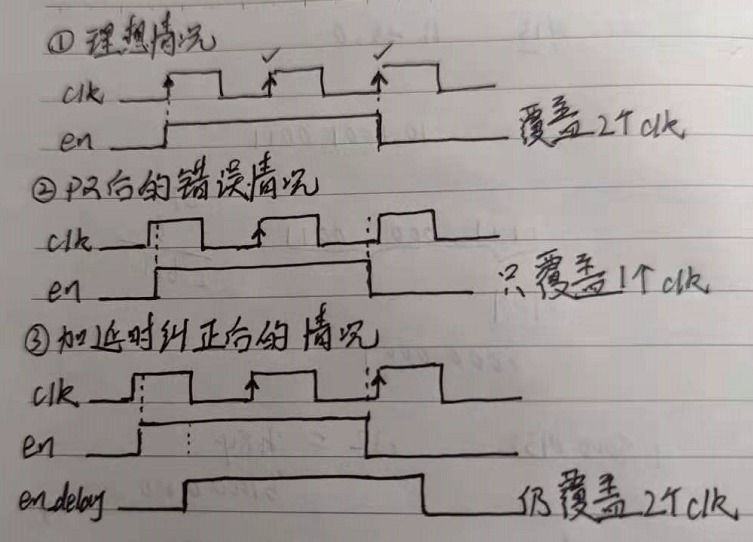 ① 理想情况
clk
en 覆盖2个clk
② PR后的错误情况
clk
en 只覆盖1个clk
③ 加延时纠正后的情况
clk
en
en_delay 仍覆盖2个clk